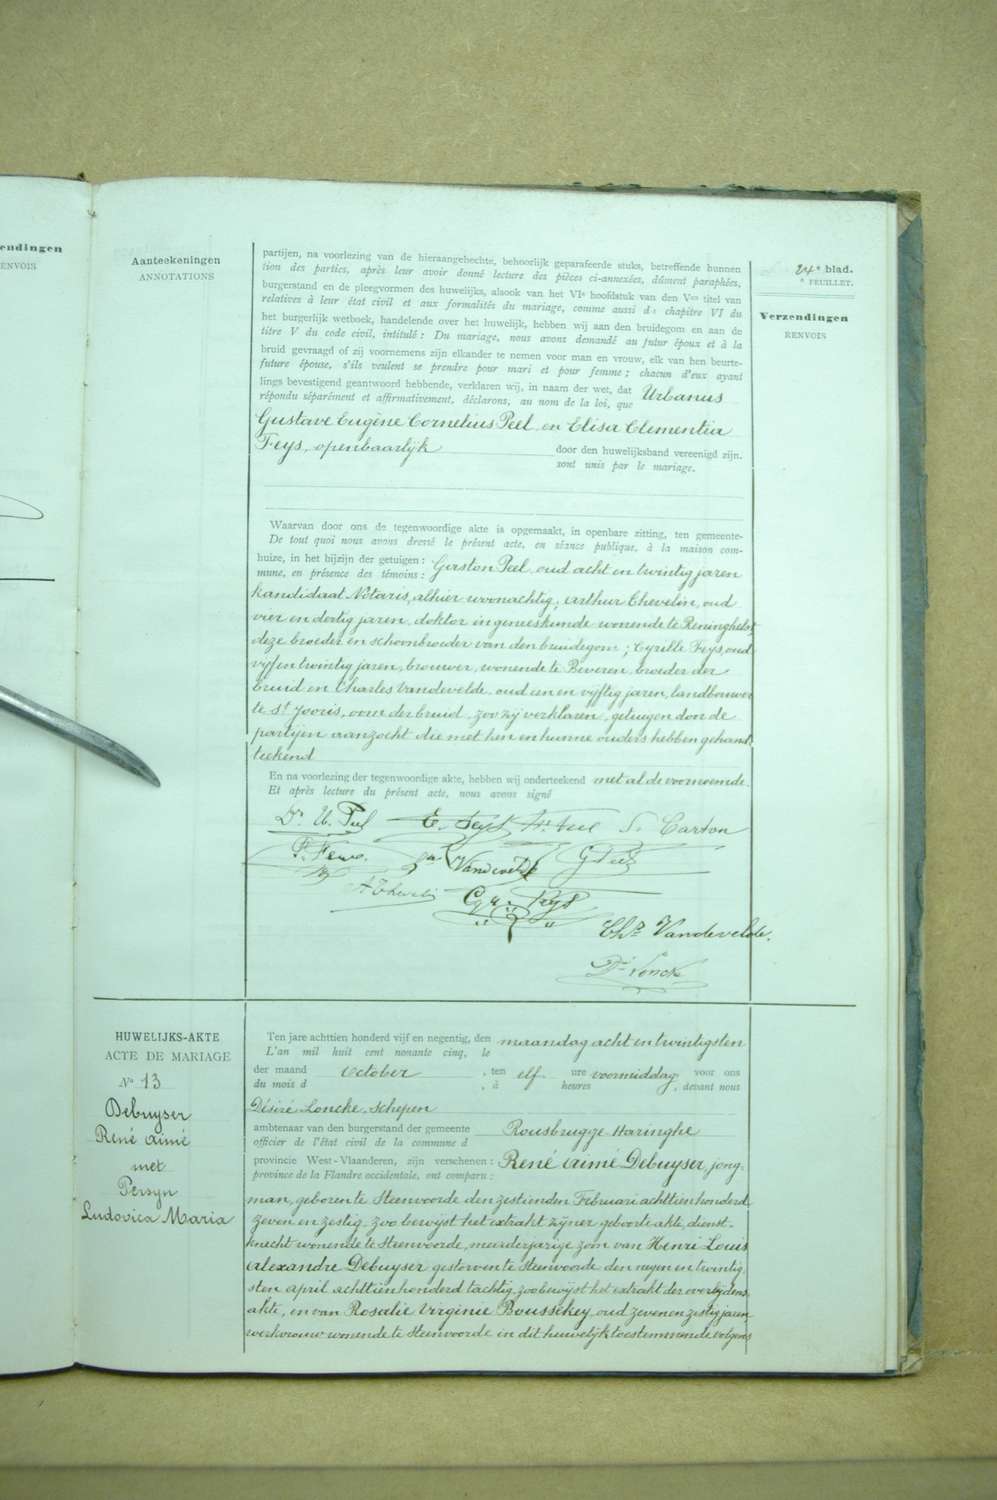 endingen
ENVOIS
Aanteekeningen
ANNOTATIONS
24e blad.
e FEUILLET.
Verzendingen
RENVOIS
partijen, na voorlezing van de hieraangehechte, behoorlijk geparafeerde stuks, betreffende hunnen
tion des parties, après leur avoir donné lecture des pièces ci-annexées, dûment paraphées,
burgerstand en de pleegvormen des huwelijks, alsook van het VIe hoofdstuk van den Ven titel van
relatives à leur état civil et aux formalités du mariage, comme aussi du chapitre VI du
het burgerlijk wetboek, handelende over het huwelijk, hebben wij aan den bruidegom en aan de
titre V du code civil, intitulé : Du mariage, nous avons demandé au futur époux et à la
bruid gevraagd of zij voornemens zijn elkander te nemen voor man en vrouw, elk van hen beurte-
future épouse, s'ils veulent se prendre pour mari et pour femme ; chacun d'eux ayant
lings bevestigend geantwoord hebbende, verklaren wij, in naam der wet, dat Urbanus
répondu séparément et affirmativement, déclarons, au nom de la loi, que
Gustave Eugène Cornelius Peel en Elisa Clementia
Feys, openbaarlijk door den huwelijksband vereenigd zijn.
sont unis par le mariage.
Waarvan door ons de tegenwoordige akte is opgemaakt, in openbare zitting, ten gemeente-
De tout quoi nous avons dressé le présent acte, en séance publique, à la maison com-
huize, in het bijzijn der getuigen : Gaston Peel, oud acht en twintig jaren
mune, en présence des témoins :
kandidaat Notaris, alhier woonachtig, Arthur Thevelin, oud
vier en dertig jaren, doktor in geneeskunde wonende te Reninghelst,
deze broeder en schoonbroeder van den bruidegom ; Cyrille Feys, oud
vijf en twintig jaren, brouwer, wonende te Beveren, broeder der
bruid en Charles Vandevelde oud een en vijftig jaren, landbouwer
te St Jooris, oom der bruid, zoo zij verklaren, getuigen don de
partijen aanzocht die met hen en hunne ouders hebben gehand
teekend
En na voorlezing der tegenwoordige akte, hebben wij onderteekend met al de voornoemde.
Et après lecture du présent acte, nous avons signé
Dr U. Peel E. Feys S. Carton
Vandevelde G Peel
A Thevelin Cyr. Feys
Chs Vandevelde.
Dé Loncke
HUWELIJKS-AKTE
ACTE DE MARIAGE
No 13
Debuyser
René Aimé
met
Persyn
Ludovica Maria
Ten jare achttien honderd vijf en negentig, den maandag acht en twintigsten
L'an mil huit cent nonante cinq, le
der maand October , ten elf ure voormiddag, voor ons
du mois d , à heures , devant nous
Désiré Loncke, Schepen
ambtenaar van den burgerstand der gemeente Rousbrugge-Haringhe
officier de l'état civil de la commune d
provincie West-Vlaanderen, zijn verschenen : René Aimé Debuyser, jong-
province de la Flandre occidentale, ont comparu :
man, geboren te Steenvoorde den zestienden Februari achttien honderd
zeven en zestig, zoo bewijst het extrakt zijner geboorteakte, dienst-
knecht wonende te Steenvoorde, meerderjarige zoon van Henri Louis
Alexandre Debuyser gestorven te Steenvoorde den negen en twintig
sten april achttien honderd tachtig zoo bewijst het extrakt der overlijdens
akte, en van Rosalie Virginie Bousschey oud zeven en zestig jaren,
werkvrouw wonende te Steenvoorde in dit huwelijk toestemmende volgens